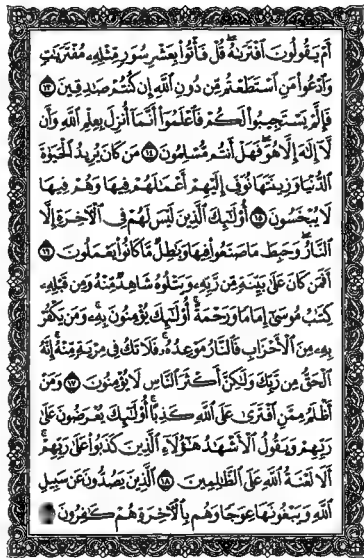 أَمْ يَقُولُونَ ٱفْتَرَىٰهُ ۖ قُلْ فَأْتُوا۟ بِعَشْرِ سُوَرٍ مِّثْلِهِۦ مُفْتَرَيَٰتٍ
وَٱدْعُوا۟ مَنِ ٱسْتَطَعْتُم مِّن دُونِ ٱللَّهِ إِن كُنتُمْ صَٰدِقِينَ ١٣
فَإِلَّمْ يَسْتَجِيبُوا۟ لَكُمْ فَٱعْلَمُوٓا۟ أَنَّمَآ أُنزِلَ بِعِلْمِ ٱللَّهِ وَأَن
لَّآ إِلَٰهَ إِلَّا هُوَ ۖ فَهَلْ أَنتُم مُّسْلِمُونَ ١٤ مَن كَانَ يُرِيدُ ٱلْحَيَوٰةَ
ٱلدُّنْيَا وَزِينَتَهَا نُوَفِّ إِلَيْهِمْ أَعْمَٰلَهُمْ فِيهَا وَهُمْ فِيهَا
لَا يُبْخَسُونَ ١٥ أُو۟لَٰٓئِكَ ٱلَّذِينَ لَيْسَ لَهُمْ فِى ٱلْءَاخِرَةِ إِلَّا
ٱلنَّارُ ۖ وَحَبِطَ مَا صَنَعُوا۟ فِيهَا وَبَٰطِلٌ مَّا كَانُوا۟ يَعْمَلُونَ ١٦
أَفَمَن كَانَ عَلَىٰ بَيِّنَةٍ مِّن رَّبِّهِۦ وَيَتْلُوهُ شَاهِدٌ مِّنْهُ وَمِن قَبْلِهِۦ
كِتَٰبُ مُوسَىٰٓ إِمَامًا وَرَحْمَةً ۚ أُو۟لَٰٓئِكَ يُؤْمِنُونَ بِهِۦ ۚ وَمَن يَكْفُرْ
بِهِۦ مِنَ ٱلْأَحْزَابِ فَٱلنَّارُ مَوْعِدُهُۥ ۚ فَلَا تَكُ فِى مِرْيَةٍ مِّنْهُ ۚ إِنَّهُ
ٱلْحَقُّ مِن رَّبِّكَ وَلَٰكِنَّ أَكْثَرَ ٱلنَّاسِ لَا يُؤْمِنُونَ ١٧ وَمَنْ
أَظْلَمُ مِمَّنِ ٱفْتَرَىٰ عَلَى ٱللَّهِ كَذِبًا ۚ أُو۟لَٰٓئِكَ يُعْرَضُونَ عَلَىٰ
رَبِّهِمْ وَيَقُولُ ٱلْأَشْهَٰدُ هَٰٓؤُلَآءِ ٱلَّذِينَ كَذَبُوا۟ عَلَىٰ رَبِّهِمْ ۚ
أَلَا لَعْنَةُ ٱللَّهِ عَلَى ٱلظَّٰلِمِينَ ١٨ ٱلَّذِينَ يَصُدُّونَ عَن سَبِيلِ
ٱللَّهِ وَيَبْغُونَهَا عِوَجًا وَهُم بِٱلْءَاخِرَةِ هُمْ كَٰفِرُونَ